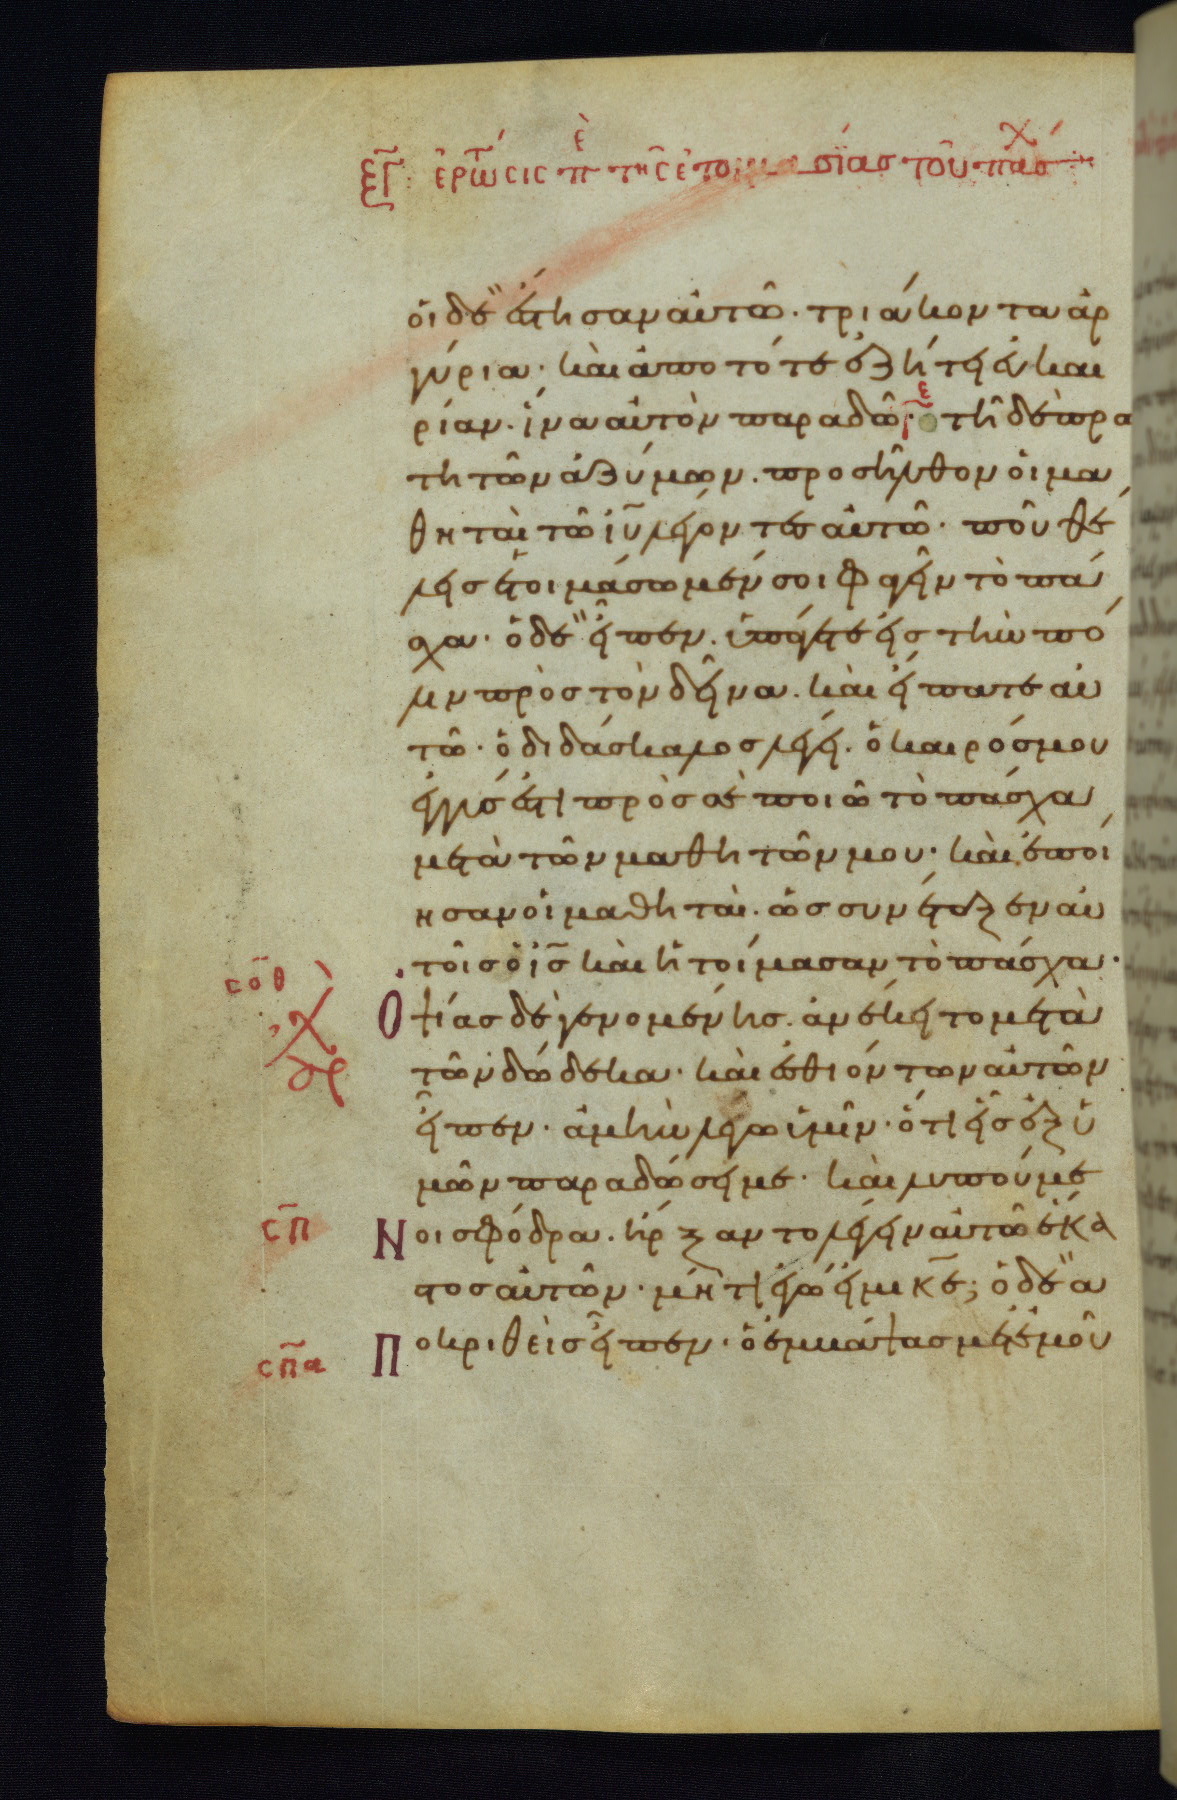 ξγ̅ ἐρώτσις πὲ τῆς ἑτοιμασίας τοῦ πάσχ
οἱ δὲ ἔστησαν αὐτῶ· τριάκοντα ἀρ
γύρια· καὶ ἀπο τότε ἐζήτει ἐυκαι
ρίαν. ἵνα αὐτὸν παραδῶ· τῆ δὲ πρώ
τη τῶν ἀζύμων. προσῆλθον οἱ μα
θηταὶ τῶ ιυ̅ λέγοντες αὐτῶ· ποῦ θέ
λεις ἑτοιμάσωμέν σοι φαγεῖν τὸ πά
σχα· ὁ δὲ εἶπεν. ὑπάγετε εἰς τὴν πό
λιν πρὸς τὸν δεῖνα. καὶ εἴπατε αυ
τῶ· ὁ διδάσκαλος λέγει. ὁ καιρός μου
ἐγγύς ἐστι πρὸς σὲ ποιῶ τὸ πάσχα
μετὰ τῶν μαθητῶν μου· καὶ ἐποί
ησαν οἱ μαθηταὶ. ὡς συνέταξεν αυ
τοῖς ὁ ις̅ καὶ ἡτοίμασαν τὸ πάσχα·
σοθ Ὀψίας δὲ γενομένης. ἀνέκειτο μετὰ
τῶν δώδεκα· καὶ ἐσθιόντων αὐτῶν
εἶπεν· ἀμὴν λέγω ὑμῖν· ὅτι εἷς ἐξ ὑ
μῶν παραδώσει με· καὶ λυπούμε
σπ Νοι σφόδρα. ἤρξαντο λέγειν αὐτῶ ἕκα
στος αὐτῶν· μή τι ἐγώ εἰμι κε̅; ὁ δὲ ἀ
σπα Ποκριθεὶς εἶπεν· ὁ ἐμβάψας μετ' ἐμοῦ